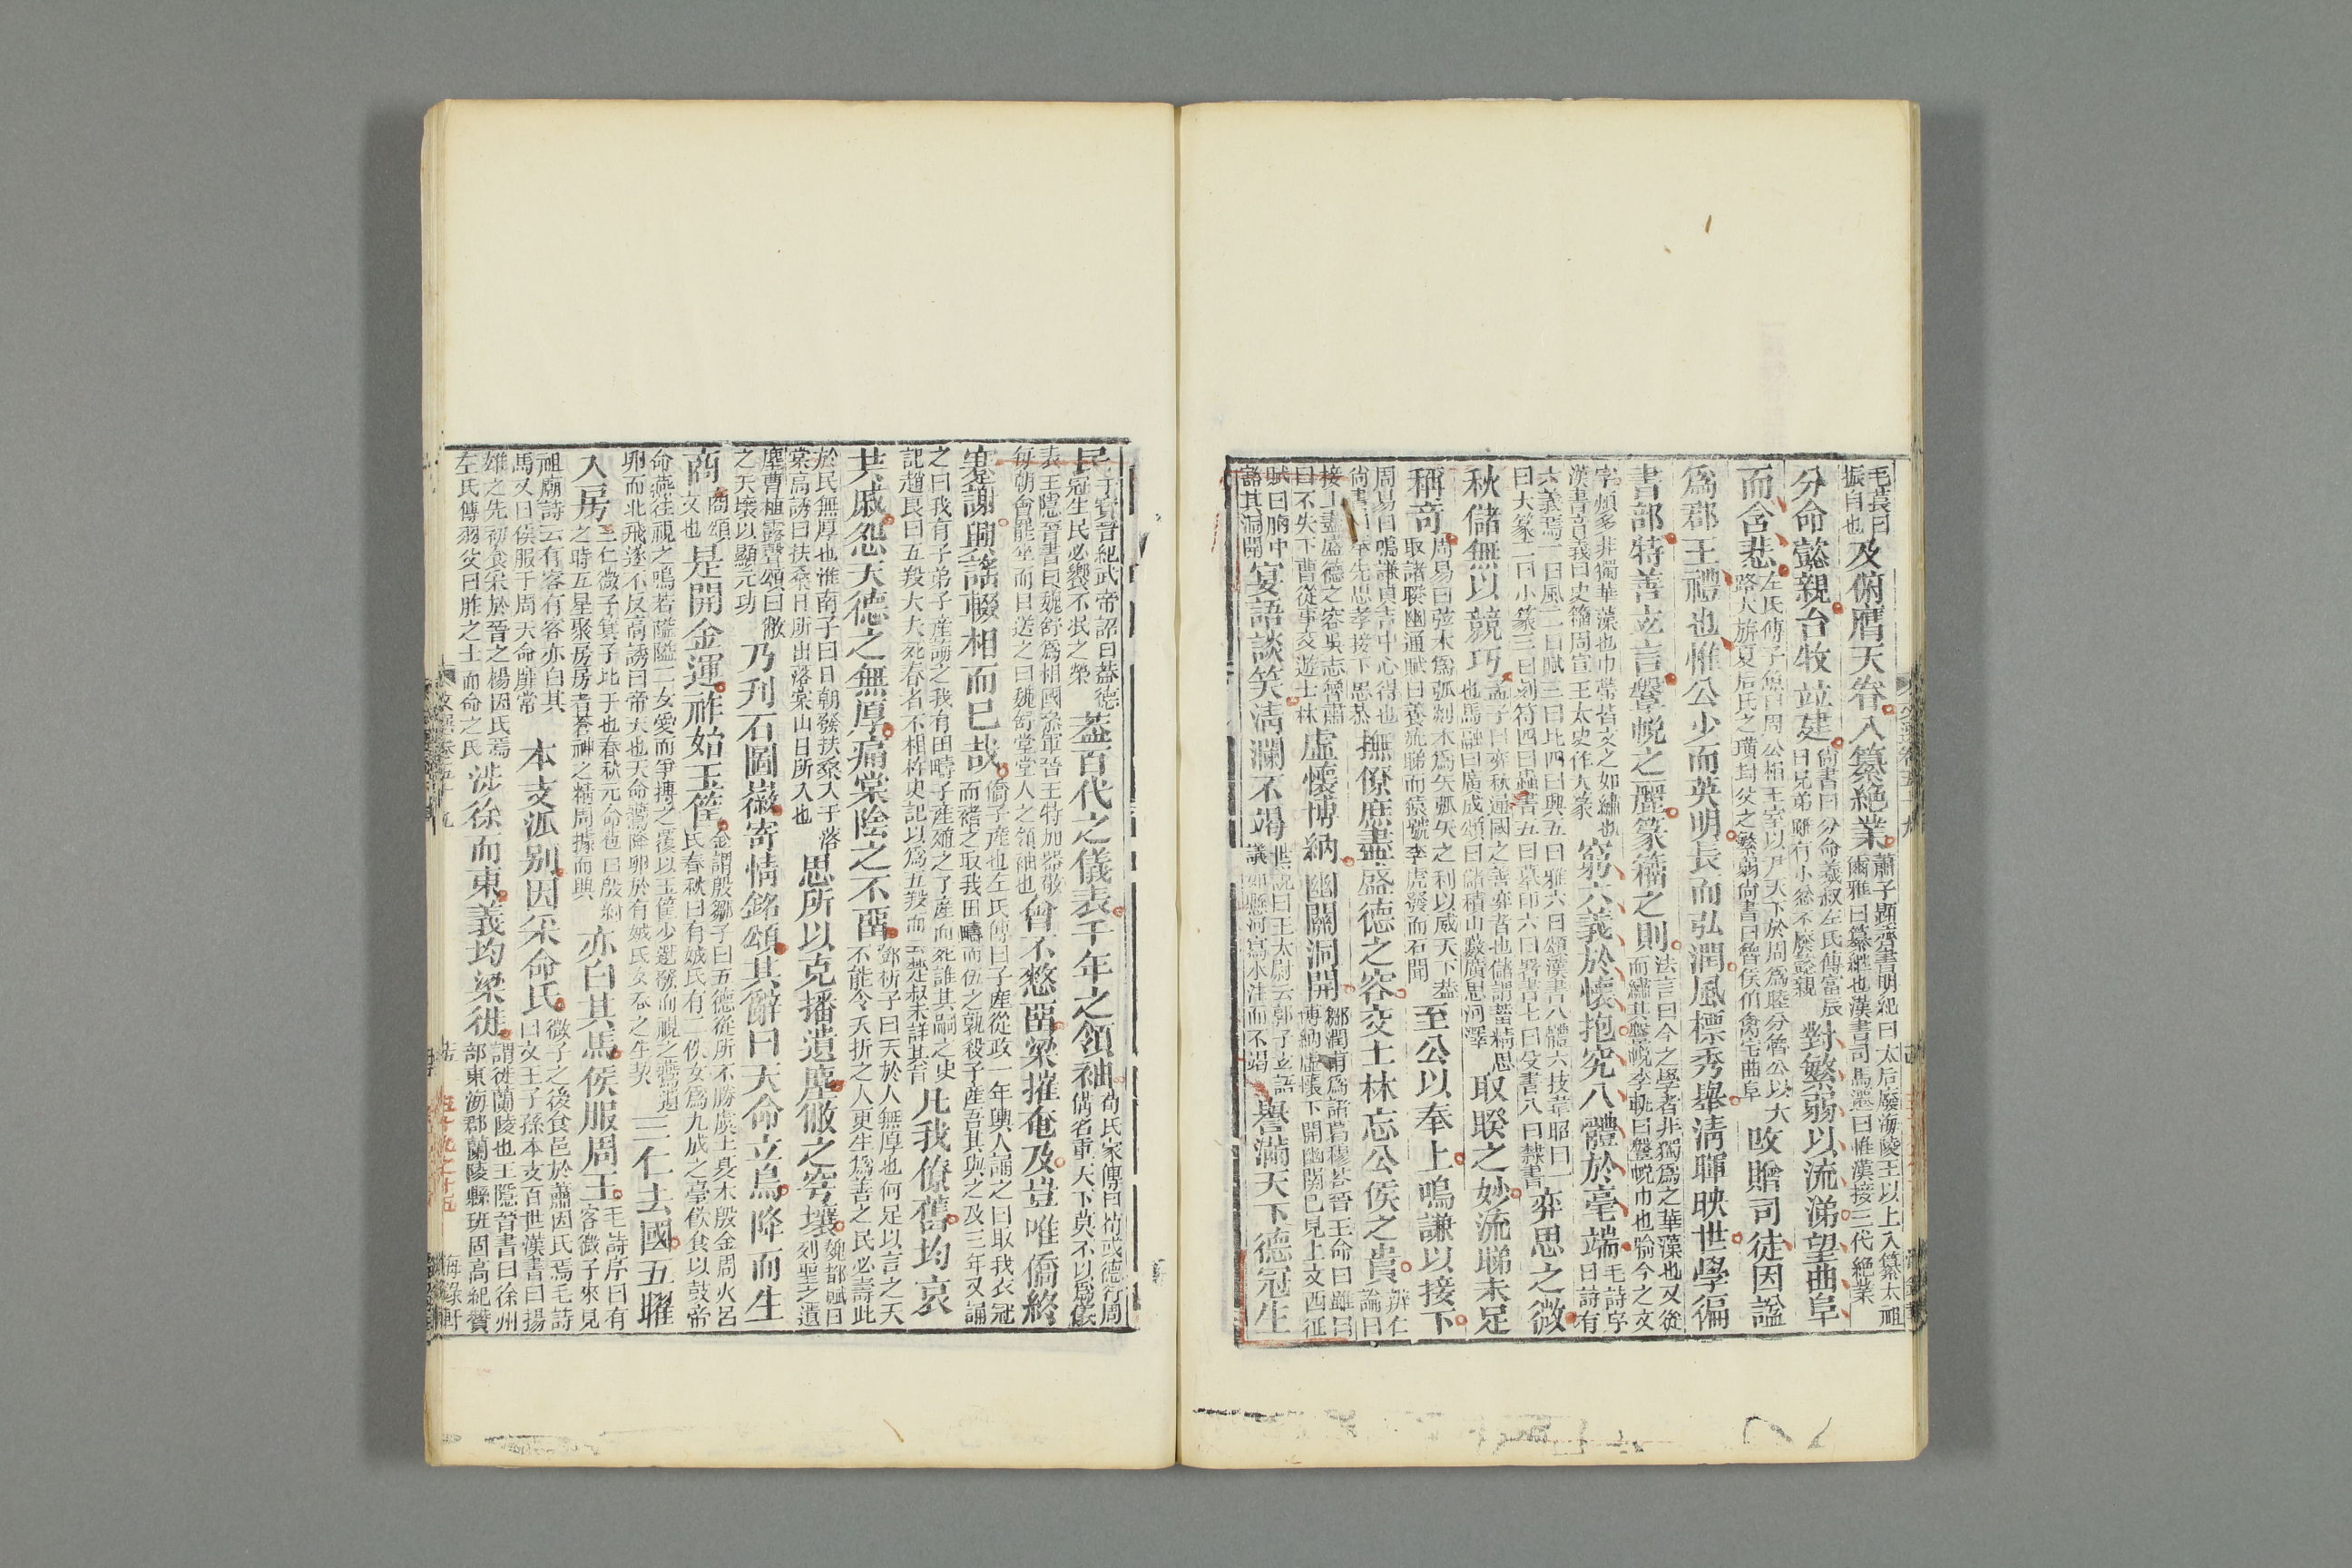 毛萇曰振自也及俯膺天眷入纂絕業蕭子顯齊書明紀曰太后廢海陵王以上入纂太祖爾雅曰纂繼也漢書司馬遷曰惟漢接三代絕業
分命懿親台牧竝建尚書曰分命羲叔左氏傳富辰曰兄弟雖有小忿不廢懿親對繁弱以流涕望曲阜
而含悲左氏傳子魚曰周公相王室以尹天下於周爲睦分魯公以大路大旂夏后氏之璜封父之繁弱尚書曰魯侯伯禽宅曲阜改贈司徒因謚
爲郡王禮也惟公少而英明長而弘潤風標秀舉清暉映世學徧
書部特善玄言鞶帨之麗篆籀之則法言曰今之學者非獨爲之華藻也又從而繡其鞶帨李軌曰鞶帨巾也喻今之文
字煩多非獨華藻也巾帶皆文之如繡也漢書音義曰史籀周宣王太史作大篆窮六義於懷抱究八體於毫端毛詩序曰詩有
六義焉一曰風二曰賦三曰比四曰興五曰雅六曰頌漢書八體六技韋昭曰一曰大篆二曰小篆三曰刻符四曰蟲書五曰摹印六曰署書七曰殳書八曰隸書弈思之微
秋儲無以競巧孟子曰弈秋通國之善弈者也儲謂蓄精思也馬融曰廣成頌曰儲積山藪廣思河澤取睽之妙流睇未足
稱奇周易曰弦木爲弧剡木爲矢弧矢之利以威天下蓋取諸睽幽通賦曰養流睇而猿號李虎發而石開至公以奉上鳴謙以接下
周易曰鳴謙貞吉中心得也尚書曰奉先思孝接下思恭撫僚庶盡盛德之容交士林忘公侯之貴辨仁論曰
接上盡盛德之容吳志魯肅曰不失下曹從事交遊士林虛懷博納幽關洞開鄒潤甫爲諸葛穆荅晉王命曰雖曰博納虛懷下開幽關已見上文西征
賦曰胸中豁其洞開宴語談笑清瀾不竭世說曰王太尉云郭子玄語議如懸河寫水注而不竭譽滿天下德冠生
民于寶晉紀武帝詔曰蓋德冠生民必饗不泯之榮蓋百代之儀表千年之領袖荀氏家傳曰荀彧德行周備名重天下莫不以爲儀
表王隱晉書曰魏舒爲相國參軍晉王特加器敬每朝會罷坐而目送之曰魏舒堂堂人之領袖也曾不憖留梁摧奄及豈唯僑終
蹇謝興謠輟相而已哉僑子產也左氏傳曰子產從政一年輿人誦之曰取我衣冠而褚之取我田疇而伍之孰殺子產吾其與之及三年又誦
之曰我有子弟子產誨之我有田疇子產殖之子產而死誰其嗣之史記趙良曰五羖大夫死舂者不相杵史記以爲五羖而云蹇叔未詳其旨凡我僚舊均哀
共戚怨天德之無厚痛棠陰之不留鄧析子曰天於人無厚也何足以言之天不能令夭折之人更生爲善之民必壽此
於民無厚也淮南子曰日朝發扶桑入于落棠高誘曰扶桑日所出落棠山日所入也思所以克播遺塵敝之穹壤魏都賦曰列聖之遺
塵曹植露盤頌曰敝之天壤以顯元功乃刊石圖徽寄情銘頌其辭曰天命玄鳥降而生
商商頌文也是開金運祚始玉筐金謂殷鄒子曰五德從所不勝虞土夏木殷金周火呂氏春秋曰有娀氏有二佚女爲九成之臺飲食以鼓帝
命燕往視之鳴若隘隘二女愛而爭搏之覆以玉筐少選發而視之鷰遺卵而北飛遂不反高誘曰帝天也天命鷰降卵於有娀氏女吞之生契三仁去國五曜
入房三仁微子箕子比干也春秋元命苞曰殷紂之時五星聚房房者蒼神之精周據而興亦白其馬侯服周王毛詩序曰有客微子來見
祖廟詩云有客有客亦白其馬又曰侯服于周天命靡常本支派别因采命氏微子之後食邑於蕭因氏焉毛詩曰文王子孫本支百世漢書曰揚
雄之先初食采於晉之楊因氏焉左氏傳羽父曰胙之土而命之氏涉徐而東義均梁徙謂徙蘭陵也王隱晉書曰徐州部東海郡蘭陵縣班固高紀贊